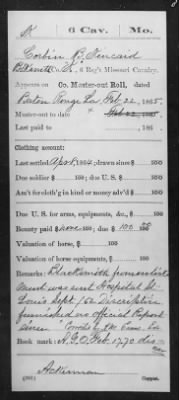 K 6 Cav. Mo.
Corbin B. Kincaid
Co. K, 6 Reg't Missouri Cavalry.
Appears on Co. Muster-out Roll, dated
Baton Rouge La Feb 22, 1865.
Muster-out to date 186 .
Last paid to 186 .
Clothing account:
Last settled 186 ; drawn since $ 100
Due soldier $ 100; due U. S. $ 100
Am't for cloth'g in kind or money adv'd $ 100
Due U. S. for arms, equipments, &c., $ 100
Bounty paid $ 100; due $ 100 100
Valuation of horse, $ 100
Valuation of horse equipments, $ 100
Remarks: Blacksmith from enlist
ment was sent Hospital St.
Louis Sept /62 Descriptive
furnished no official Report
since
Book mark:
Ackerman
Copyist.